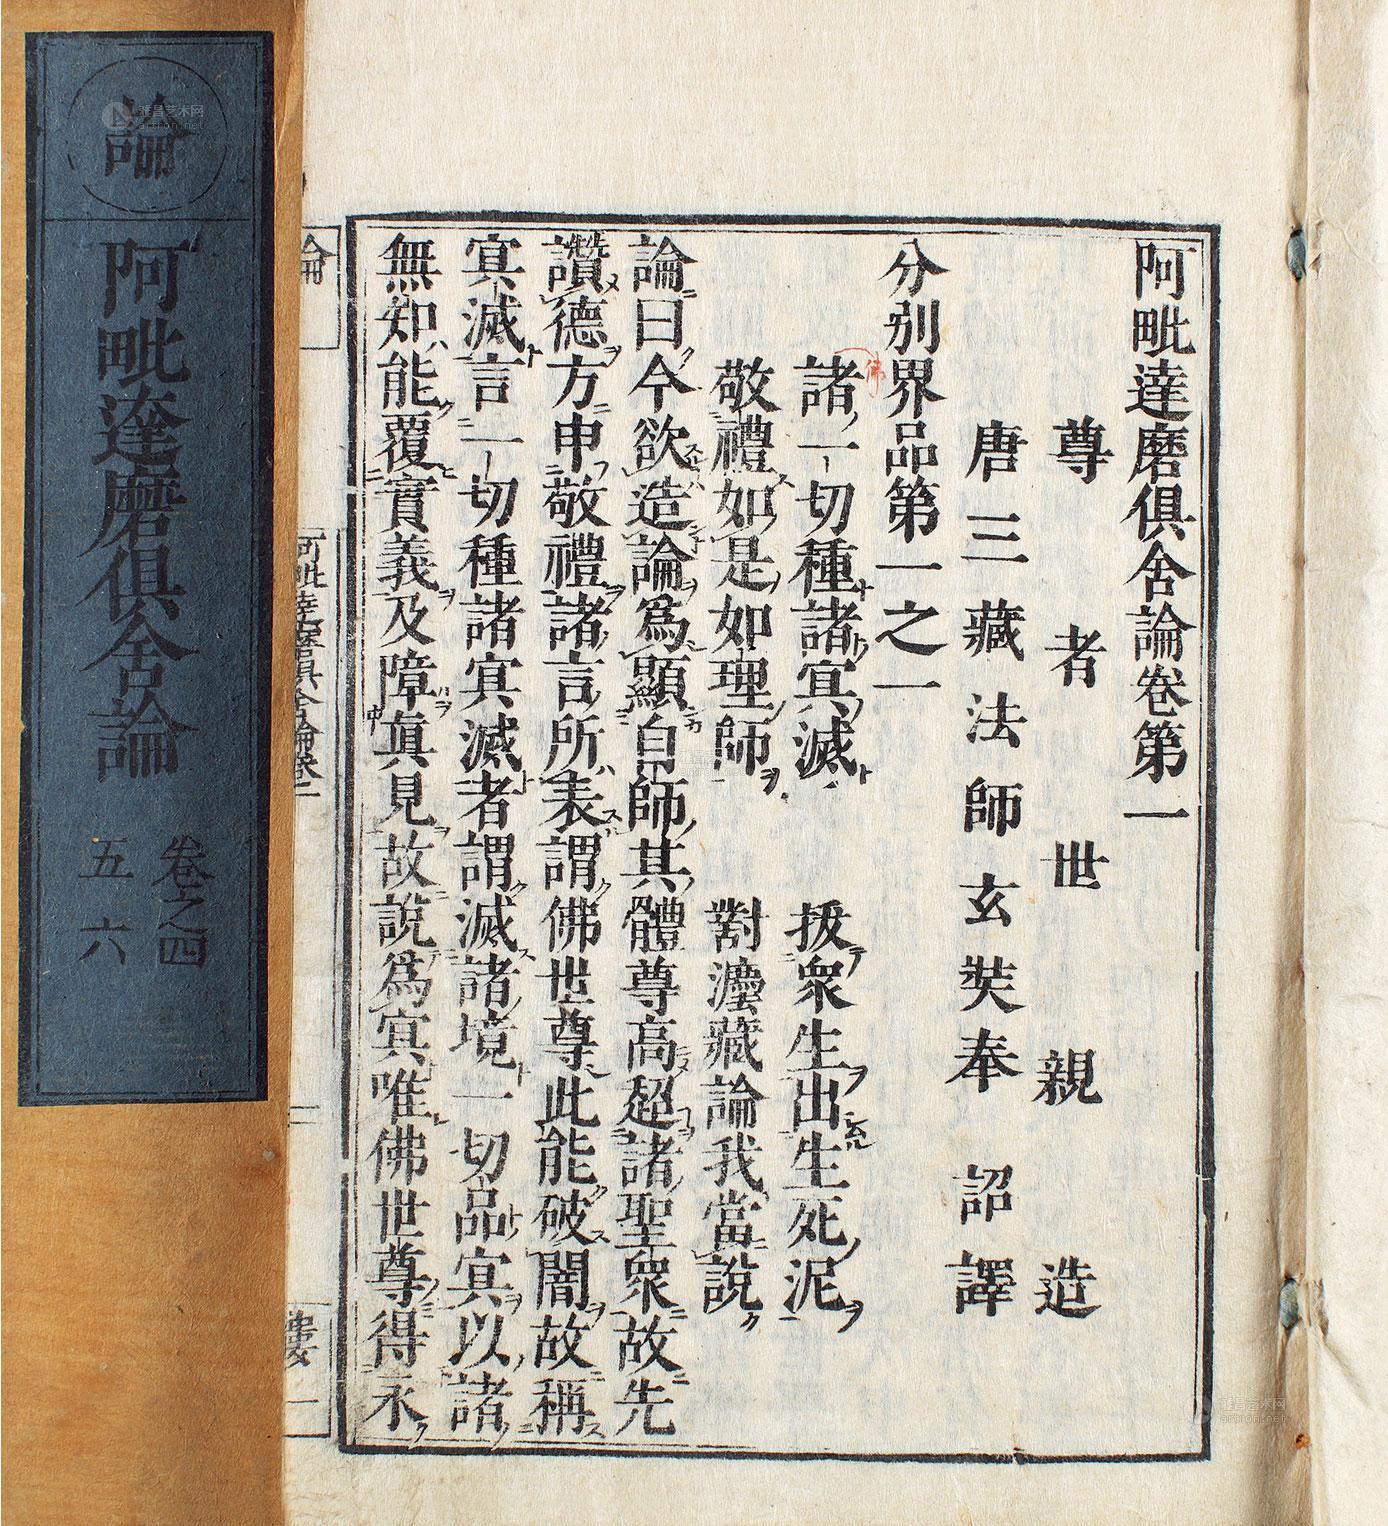 阿毗達磨俱舍論卷第一
尊者世親造
唐三藏法師玄奘奉 詔譯
分別界品第一之一
佛
諸一切種諸冥滅 拔衆生出生死泥
敬禮如是如理師 對灋藏論我當說
論曰今欲造論爲顯自師其體尊高超諸聖衆故先
讚德方申敬禮諸言所表謂佛世尊此能破闇故稱
冥滅言一切種諸冥滅者謂滅諸境一切品冥以諸
無知能覆實義及障眞見故說爲冥唯佛世尊得永
論
阿毗達磨俱舍論卷一
一
論
阿毗達磨俱舍論
卷之四
五六
雅昌艺术网
artron.net
雅昌艺术网
artron.net